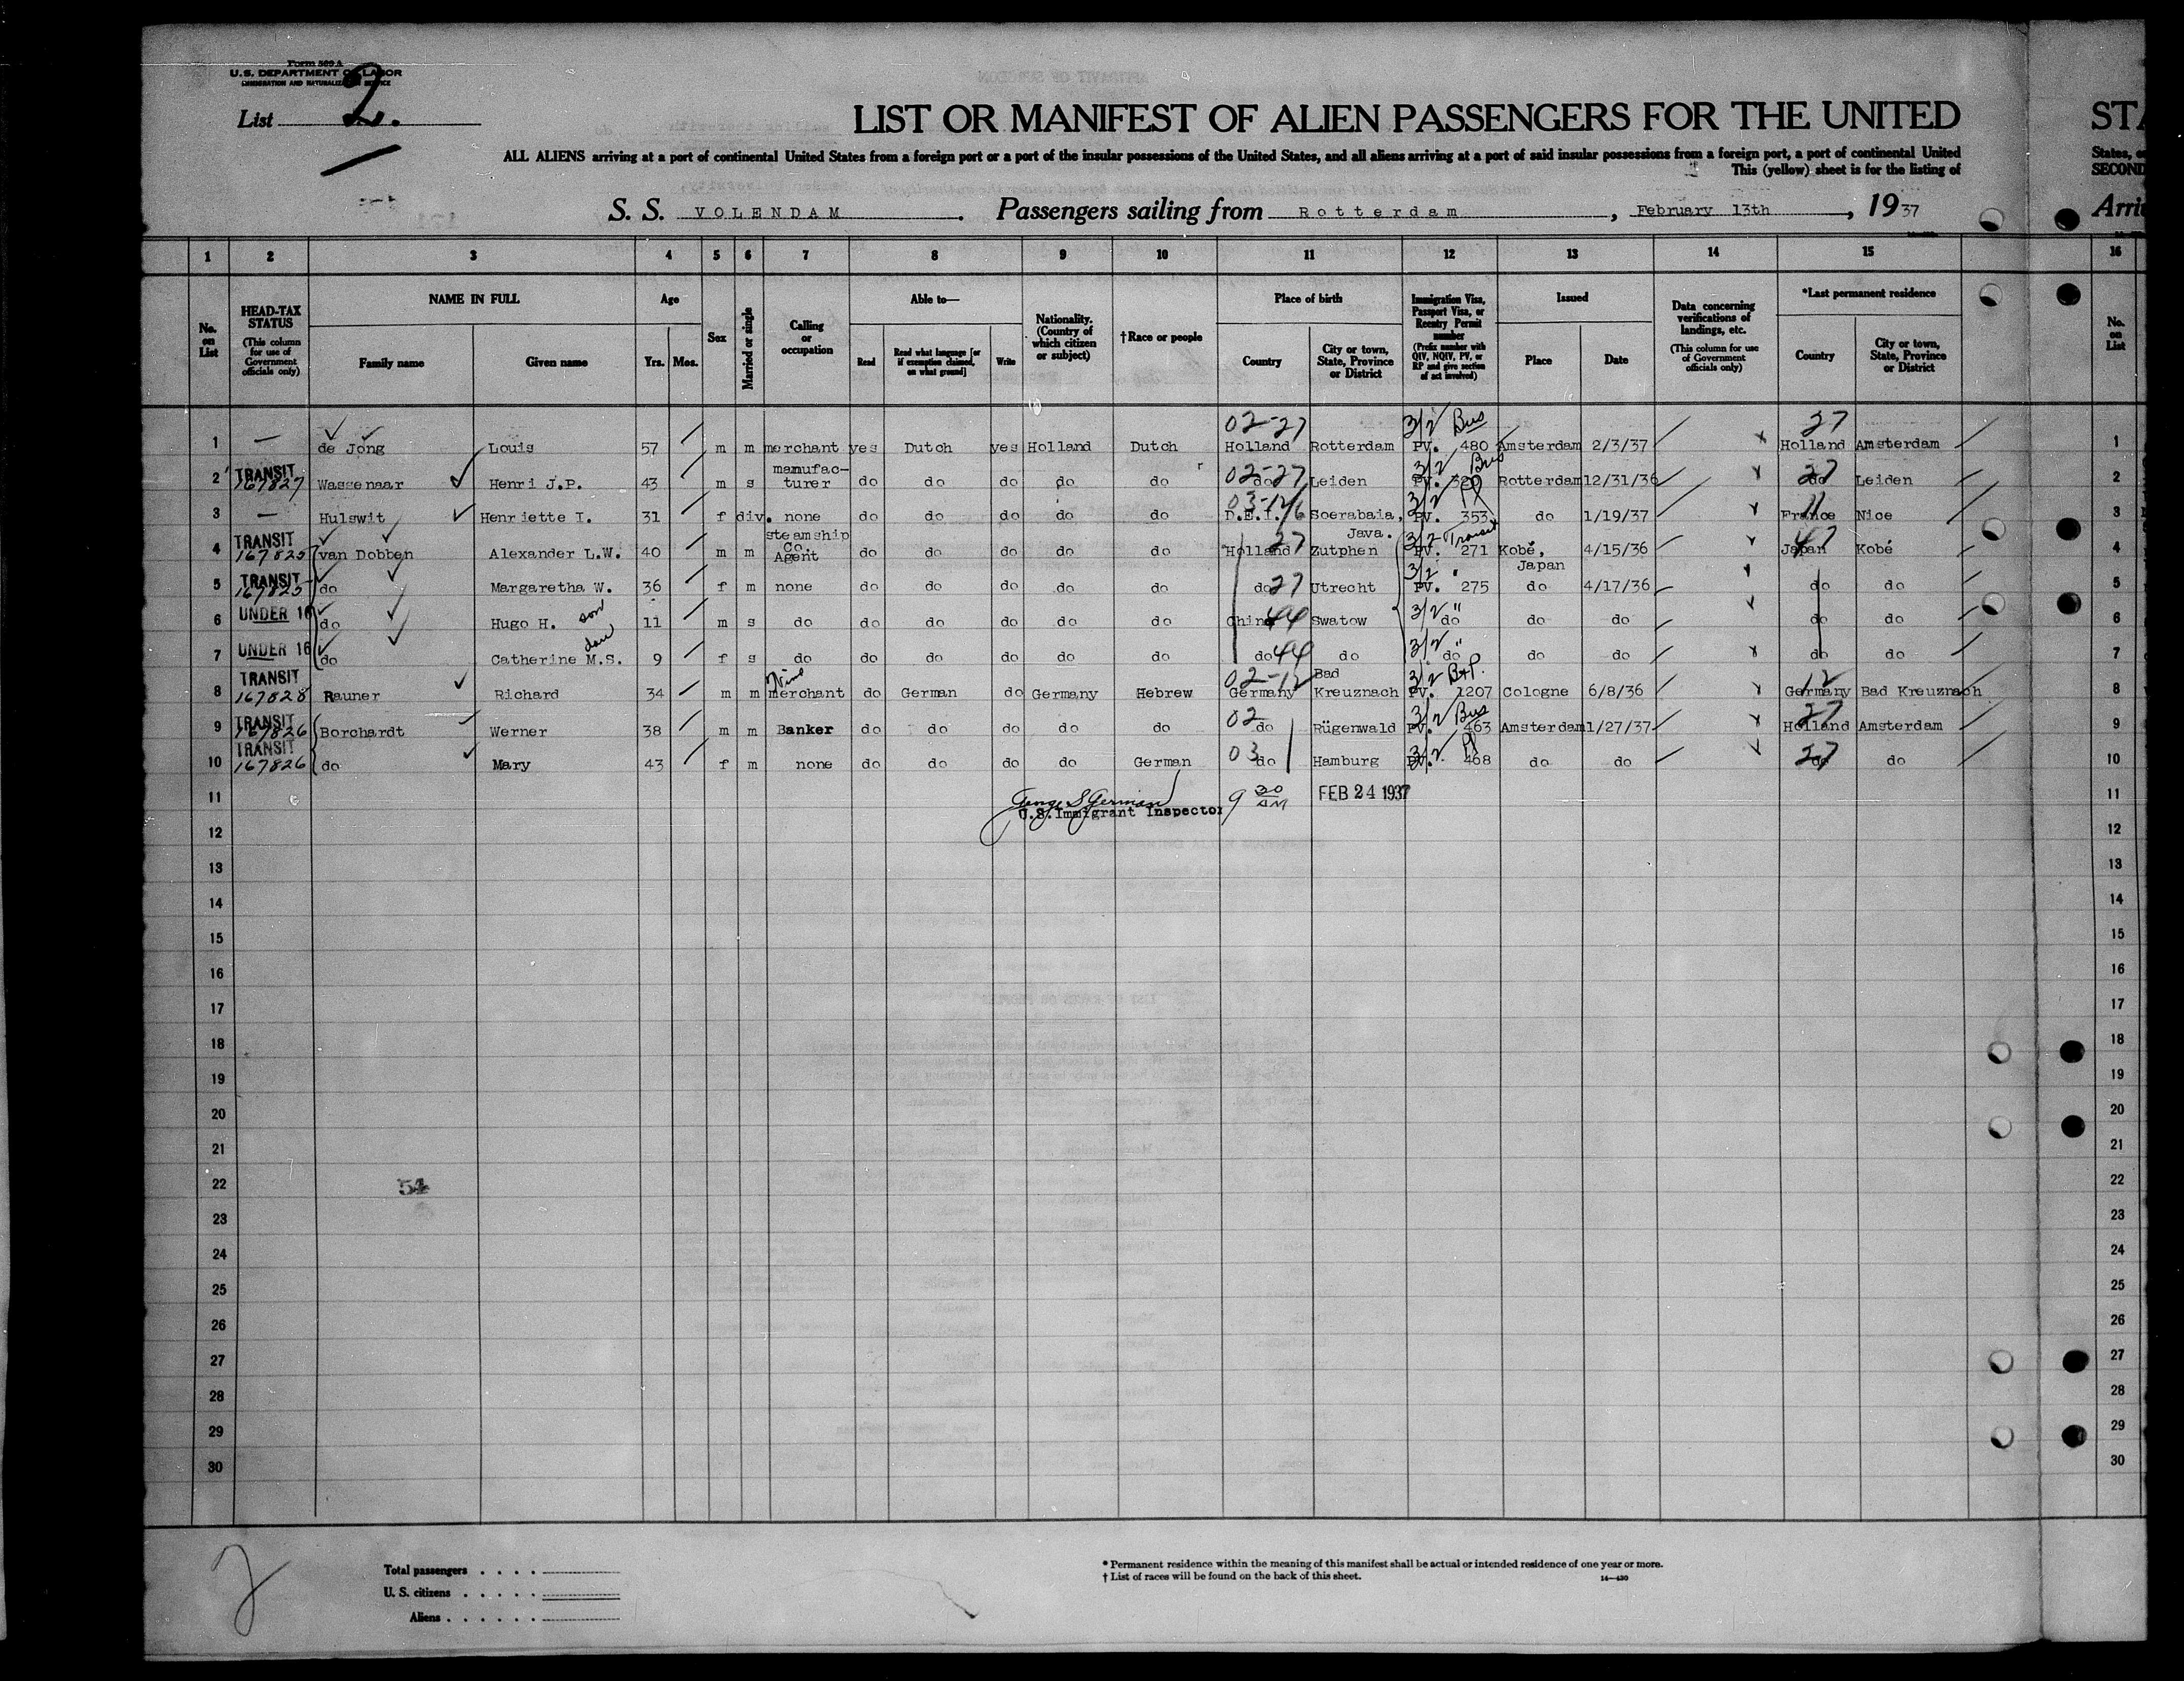 Form 569 A
U. S. DEPARTMENT OF LABOR
IMMIGRATION AND NATURALIZATION SERVICE
List 2.
LIST OR MANIFEST OF ALIEN PASSENGERS FOR THE UNITED
STA
ALL ALIENS arriving at a port of continental United States from a foreign port or a port of the insular possessions of the United States, and all aliens arriving at a port of said insular possessions from a foreign port, a port of continental United
States, or
This (yellow) sheet is for the listing of
SECOND
S. S. VOLENDAM. Passengers sailing from Rotterdam, February 13th, 1937
Arri
1 2 3 4 5 6 7 8 9 10 11 12 13 14 15 16
No. on List
HEAD-TAX STATUS
(This column for use of Government officials only)
NAME IN FULL
Family name
Given name
Age
Yrs. Mos.
Sex
Married or single
Calling or occupation
Able to—
Read
Read what language [or if exemption claimed, on what ground]
Write
Nationality. (Country of which citizen or subject)
† Race or people
Place of birth
Country
City or town, State, Province or District
Immigration Visa, Passport Visa, or Reentry Permit number
(Prefix number with QIV, NQIV, PV, or RP and give section of act involved)
Issued
Place
Date
Data concerning verifications of landings, etc.
(This column for use of Government officials only)
*Last permanent residence
Country
City or town, State, Province or District
No. on List
02-27 3/2 Bus 27
1 — de Jong Louis 57 m m merchant yes Dutch yes Holland Dutch Holland Rotterdam PV. 480 Amsterdam 2/3/37 Holland Amsterdam 1
2 TRANSIT 167827 Wassenaar Henri J.P. 43 m s manufac- turer do do do do do 02-27 do Leiden 3/2 Bus PV. Rotterdam 12/31/36 27 do Leiden 2
3 — Hulswit Henriette I. 31 f div. none do do do do do D.E.I. Soerabaia, Java. 3/2 Pl PV. 353 do 1/19/37 11 France Nice 3
4 TRANSIT 167825 van Dobben Alexander L.W. 40 m m steamship Co. Agent do do do do do Holland 27 Zutphen 3/2 Transit PV. 271 Kobé, Japan 4/15/36 47 Japan Kobé 4
5 TRANSIT 167825 do Margaretha W. 36 f m none do do do do do do 27 Utrecht 3/2 " PV. 275 do 4/17/36 do do 5
6 UNDER 16 do Hugo H. son 11 m s do do do do do do China 44 Swatow 3/2 " do do do do do 6
7 UNDER 16 do Catherine M.S. dau 9 f s do do do do do do do 44 do 3/2 " do do do do do 7
8 TRANSIT 167828 Rauner Richard 34 m m Wine merchant do German do Germany Hebrew 02-12 Germany Bad Kreuznach 3/2 B+P. PV. 1207 Cologne 6/8/36 12 Germany Bad Kreuznach 8
9 TRANSIT 167826 Borchardt Werner 38 m m Banker do do do do do 02 do Rügenwald 3/2 Bus PV. 463 Amsterdam 1/27/37 27 Holland Amsterdam 9
10 TRANSIT 167826 do Mary 43 f m none do do do do German 03 do Hamburg 3/2 Pl PV. 468 do do 27 do do 10
11 George S German 9 30 AM FEB 24 1937 11
U.S. Immigrant Inspector
12 12
13 13
14 14
15 15
16 16
17 17
18 18
19 19
20 20
21 21
22 54 22
23 23
24 24
25 25
26 26
27 27
28 28
29 29
30 30
2
Total passengers . . . .
U. S. citizens . . . . .
Aliens . . . . . .
* Permanent residence within the meaning of this manifest shall be actual or intended residence of one year or more.
† List of races will be found on the back of this sheet.
14—430